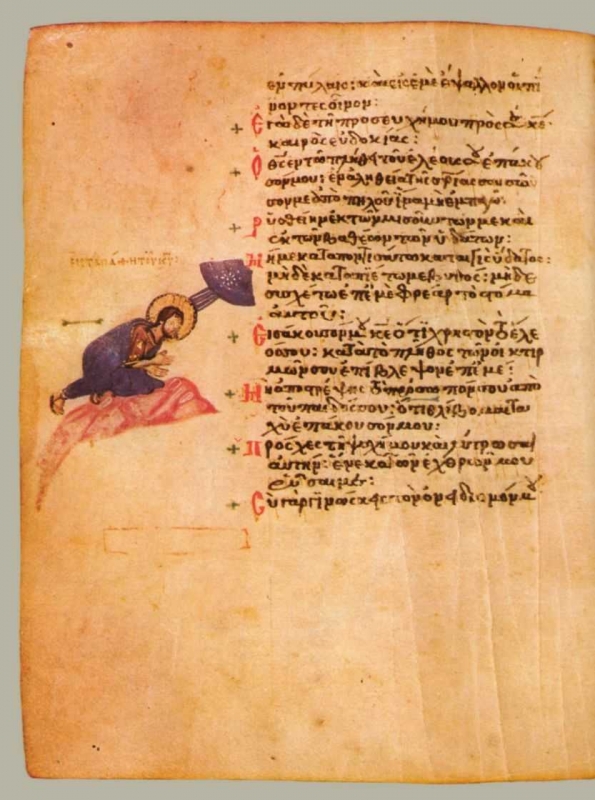 ἐν πύλαις: καὶ εἰς ἐμὲ ἔψαλλον οἱ πί
νοντες οἶνον:
Ἐγὼ δὲ τῇ προσευχῇ μου πρὸς σὲ κε:
καιρὸς εὐδοκίας:
Ὁ θς ἐν τῷ πλήθει τοῦ ἐλέους σου ἐπάκου
σόν μου: ἐν ἀληθείᾳ τῆς σριας σου σῶ
σόν με ἀπὸ πηλοῦ ἵνα μὴ ἐμπαγῶ:
Ῥυσθείην ἐκ τῶν μισούντων με καὶ
ἐκ τῶν βαθέων τῶν ὑδάτων:
Μή με καταποντισάτω καταιγὶς ὕδατος:
μηδὲ καταπιέτω με βυθός: μηδὲ
συσχέτω ἐπ' ἐμὲ φρέαρ τὸ στόμα
αὐτοῦ:
Εἰσάκουσόν μου κε ὅτι χρηστὸν τὸ ἔλε
ός σου: κατὰ τὸ πλῆθος τῶν οἰκτιρ
μῶν σου ἐπίβλεψον ἐπ' ἐμέ:
Μὴ ἀποστρέψῃς τὸ πρόσωπόν σου ἀπὸ
τοῦ παιδός σου: ὅτι θλίβομαι τα
χὺ ἐπάκουσόν μου:
Πρόσχες τῇ ψυχῇ μου καὶ λύτρωσαι
αὐτήν: ἕνεκα τῶν ἐχθρῶν μου
ῥῦσαί με:
Σὺ γὰρ γινώσκεις τὸν ὀνειδισμόν μου